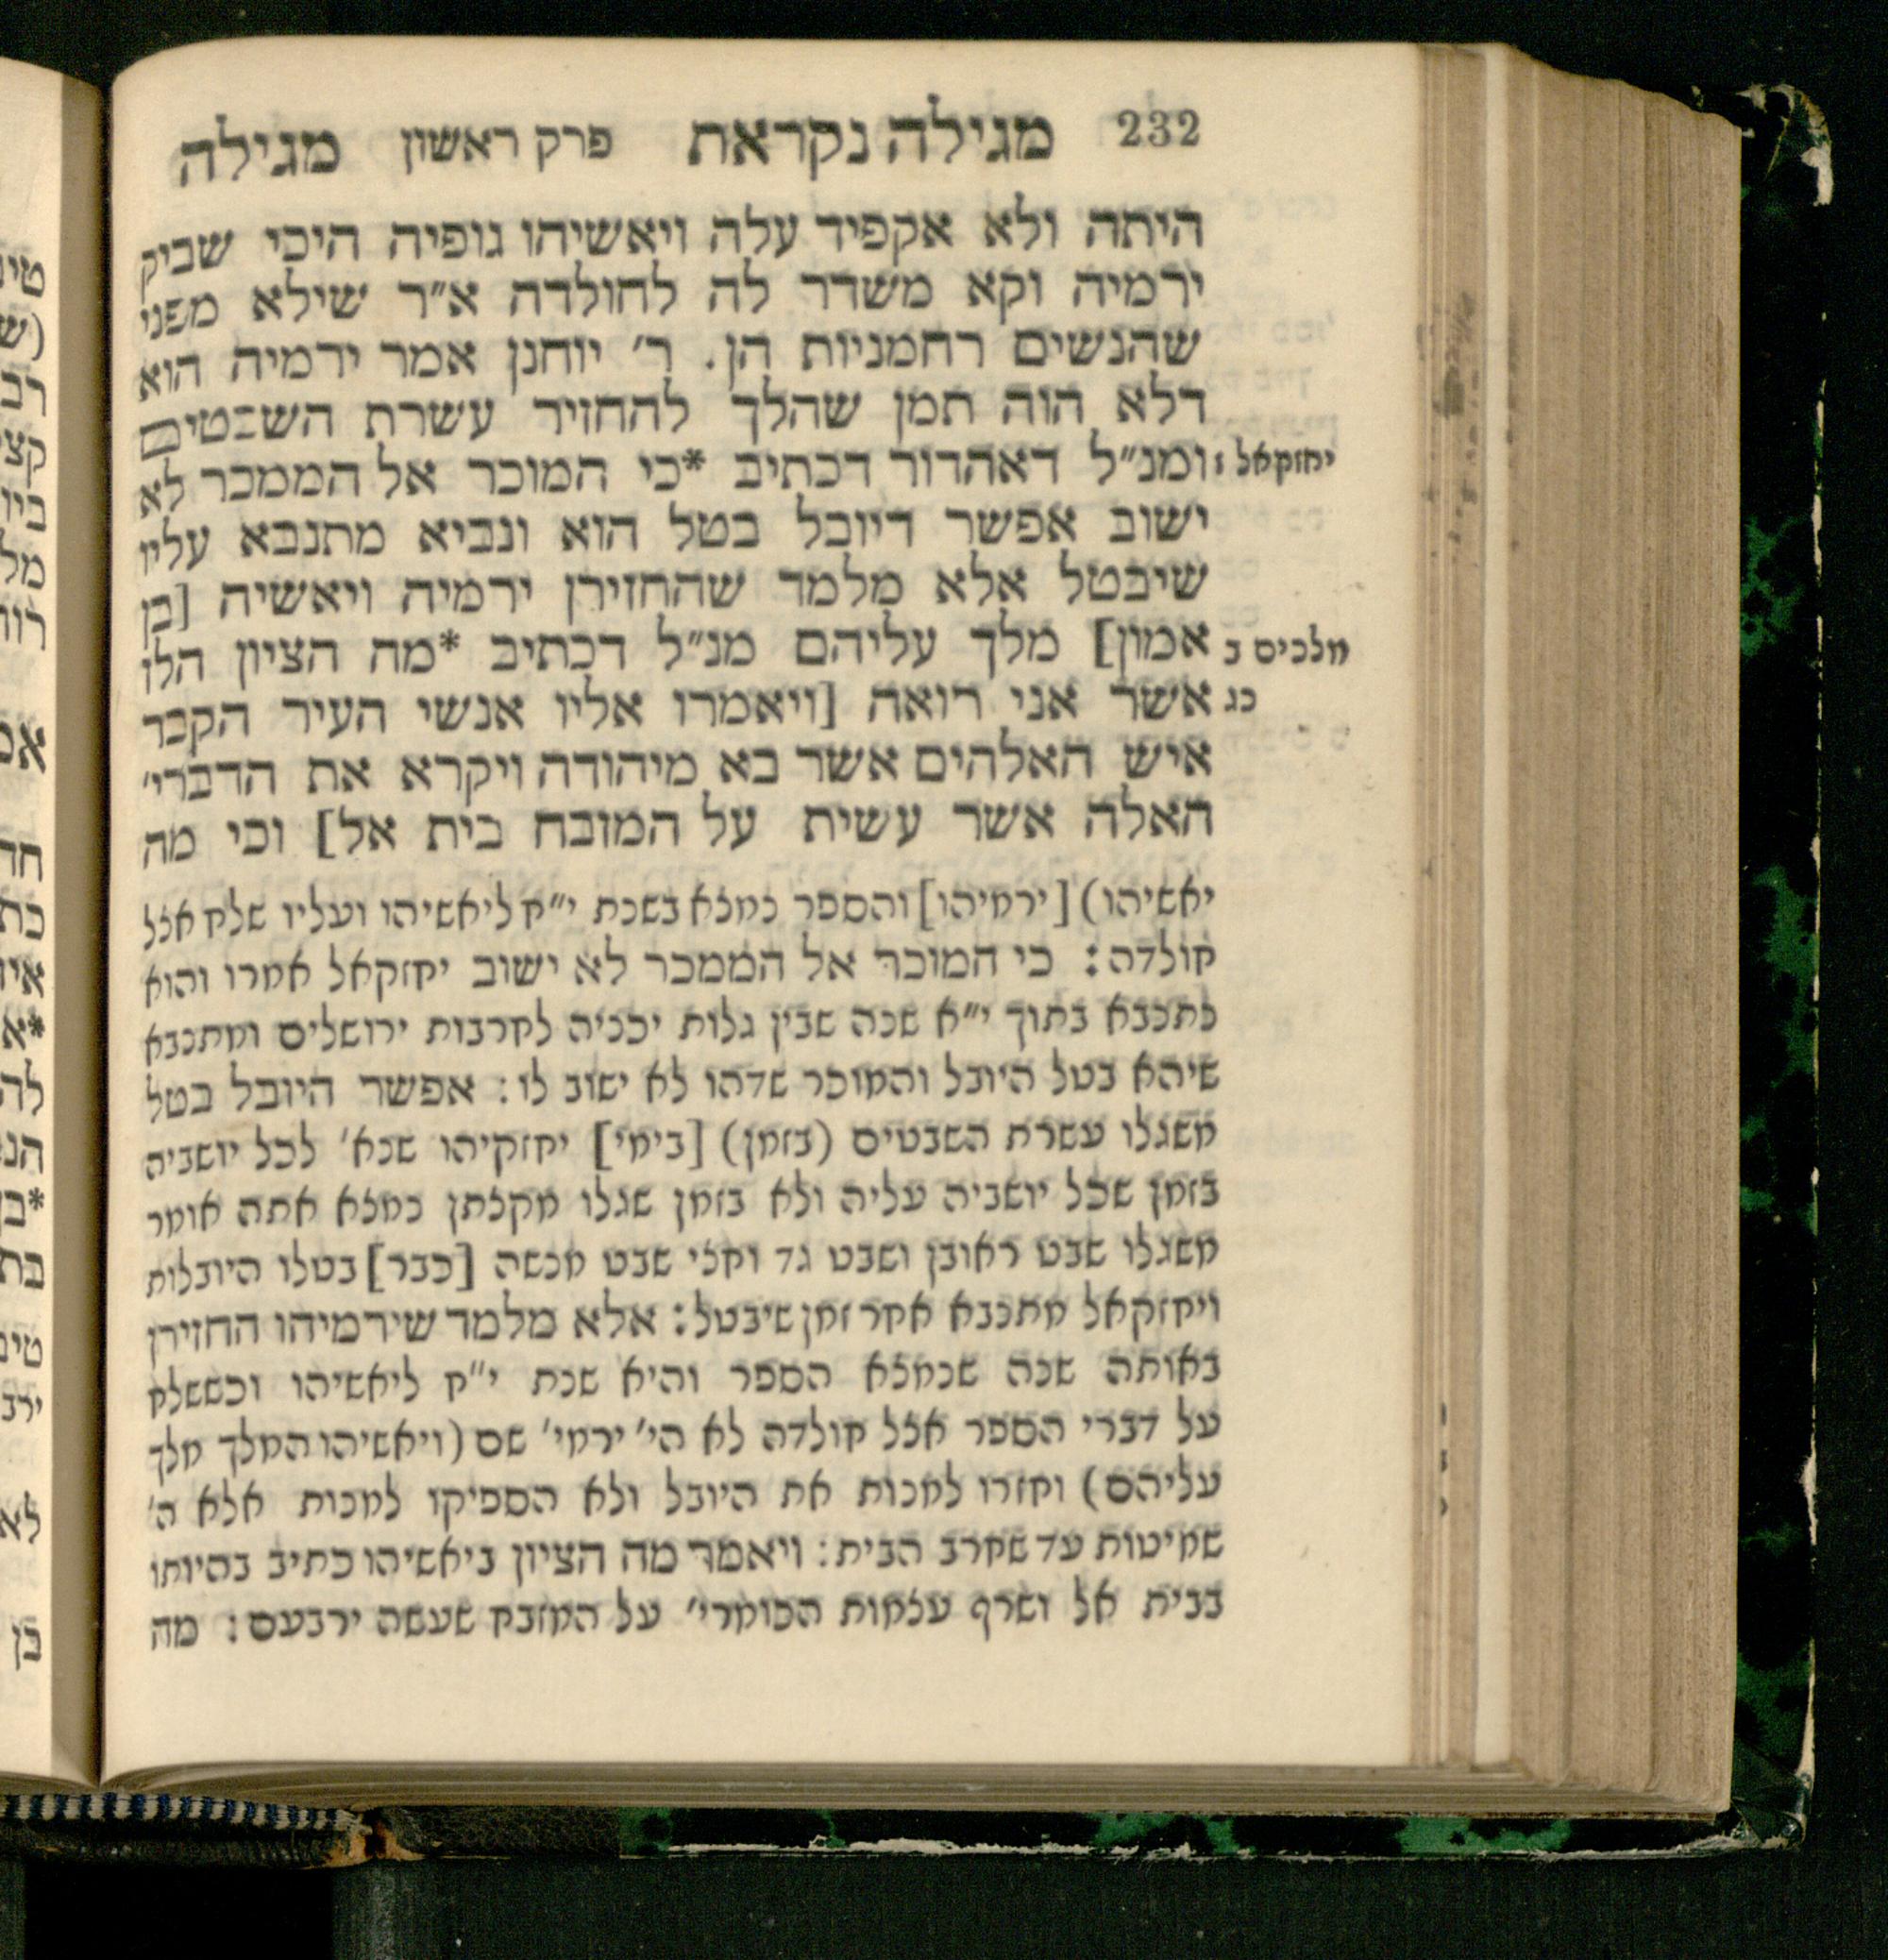 232 מגילה נקראת פרק ראשון מגילה
היתה ולא אקפיד עלה ויאשיהו גופיה היכי שביק
ירמיה וקא משדר לה לחולדה א״ר שילא מפני
שהנשים רחמניות הן. ר׳ יוחנן אמר ירמיה הוא
דלא הוה תמן שהלך להחזיר עשרת השבטים
יחזקאל ז
ומנ״ל דאהדור דכתיב *כי המוכר אל הממכר לא
ישוב אפשר דיובל בטל הוא ונביא מתנבא עליו
שיבטל אלא מלמד שהחזירן ירמיה ויאשיה [בן
מלכים ב
אמון] מלך עליהם מנ״ל דכתיב *מה הציון הלו
כג
אשר אני רואה [ויאמרו אליו אנשי העיר הקבר
איש האלהים אשר בא מיהודה ויקרא את הדברי׳
האלה אשר עשית על המזבח בית אל] וכי מה
יאשיהו) [ירמיהו] והספר נמצא בשנת י״ח ליאשיהו ועליו שלח אצל
חולדה: כי המוכר אל הממכר לא ישוב יחזקאל אמרו והוא
נתנבא בתוך י״א שנה שבין גלות יכניה לחרבות ירושלים ומתנבא
שיהא בטל היובל והמוכר שדהו לא ישוב לו: אפשר היובל בטל
משגלו עשרת השבטים (בזמן) [בימי] יחזקיהו שנא׳ לכל יושביה
בזמן שכל יושביה עליה ולא בזמן שגלו מקצתן נמצא אתה אומר
משגלו שבט ראובן ושבט גד וחצי שבט מנשה [כבר] בטלו היובלות
ויחזקאל מתנבא אחר זמן שיבטל: אלא מלמד שירמיהו החזירן
באותה שנה שנמצא הספר והיא שנת י״ח ליאשיהו וכששלח
על דברי הספר אצל חולדה לא הי׳ ירמי׳ שם (ויאשיהו המלך מלך
עליהם) וחזרו למנות את היובל ולא הספיקו למנות אלא ה׳
שמיטות עד שחרב הבית: ויאמר מה הציון ביאשיהו כתיב בהיותו
בבית אל ושרף עצמות הכומרי׳ על המזבח שעשה ירבעם: מה